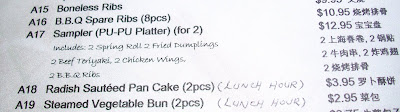 A15 Boneless Ribs
A16 B.B.Q Spare Ribs (8pcs) $10.95 烧烤排骨
A17 Sampler (PU-PU Platter) (for 2) $12.95 宝宝盘
Includes: 2 Spring Roll 2 Fried Dumplings 2 上海春卷, 2 锅贴
2 Beef Teriyaki, 2 Chicken Wings, 2 牛肉串, 2 炸鸡翅
2 B.B.Q Ribs 2 烧烤排骨
A18 Radish Sautéed Pan Cake (2pcs) (LUNCH HOUR) $3.95 罗卜酥饼
A19 Steamed Vegetable Bun (2pcs) (LUNCH HOUR) $2.95 菜包